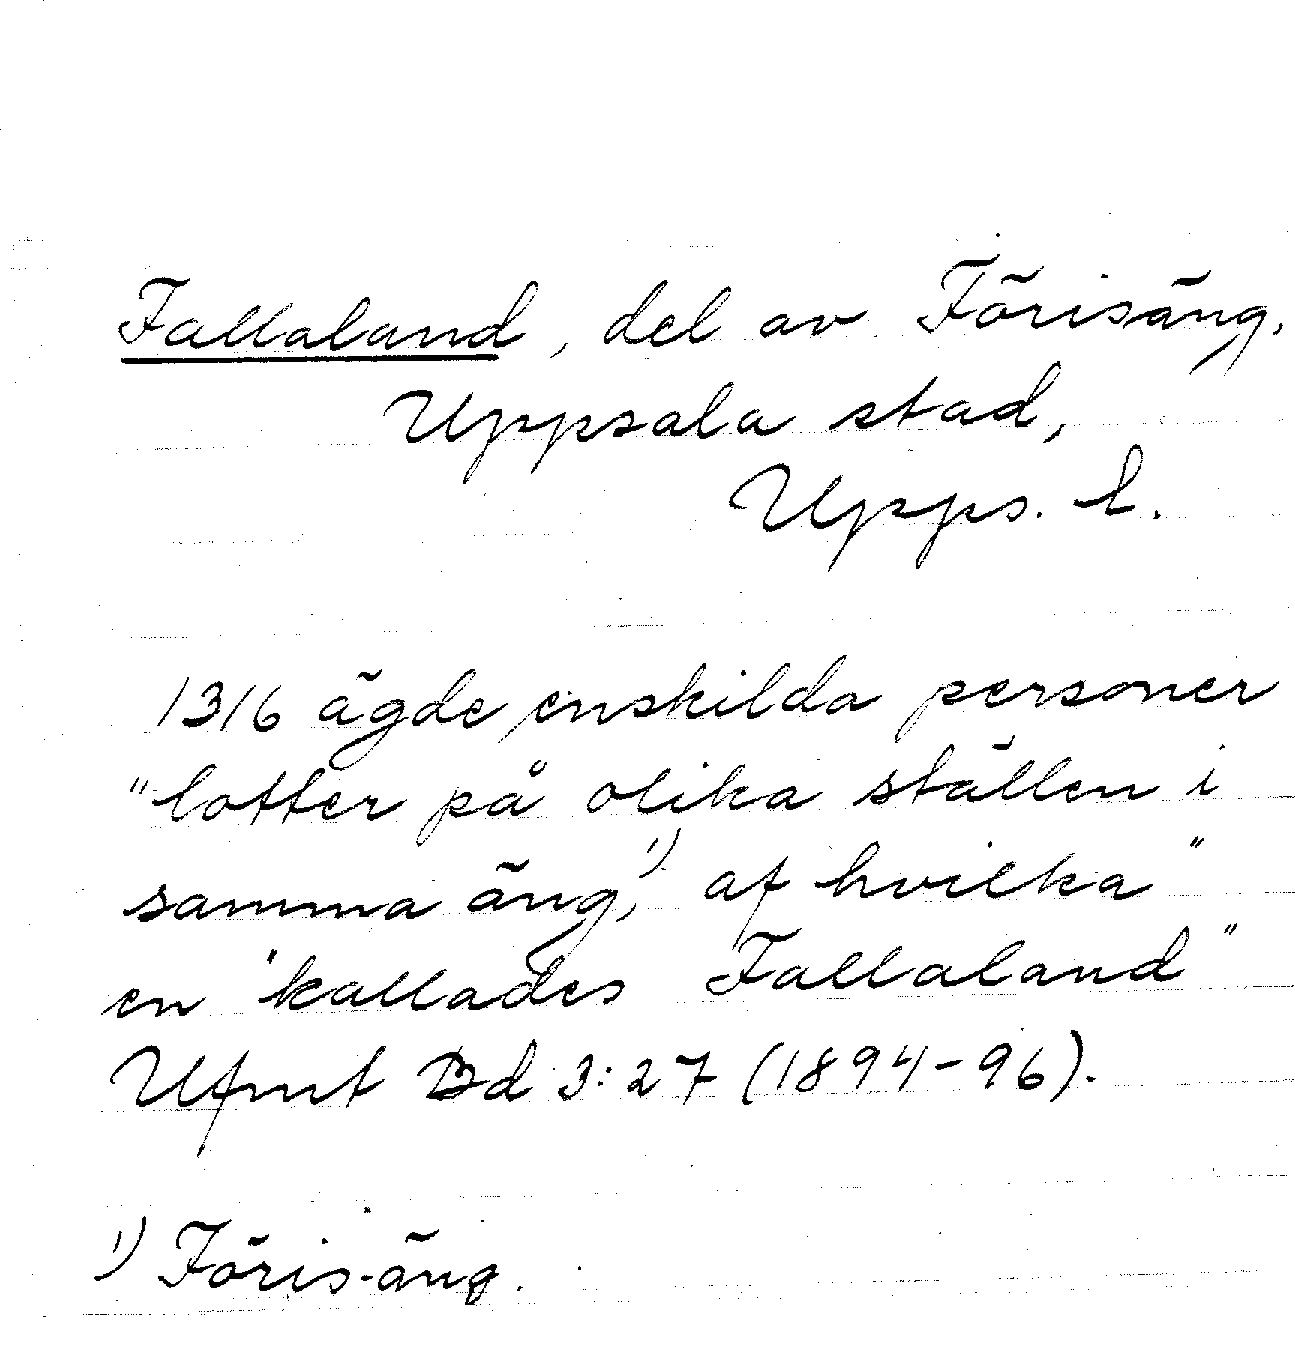 Fallaland, del av Förisäng.
Uppsala stad,
Upps. l.
1316 ägde enskilda personer
"lotter på olika ställen i
samma äng,¹) af hvilka"
en "kallades Fallaland"
Ufmt Bd 3:27 (1894-96).
¹) Föris-äng.